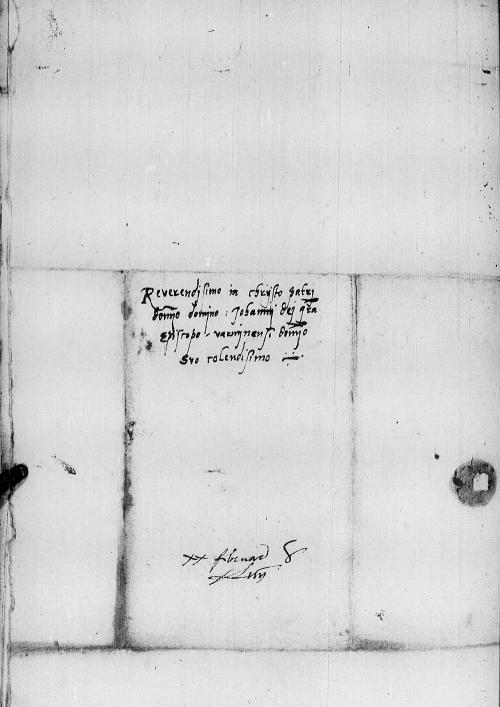 Reverendissimo in christo patri
domno domino : Johannj dej gra
Episcopo - varmjnensi domno
Suo colendissimo
xx